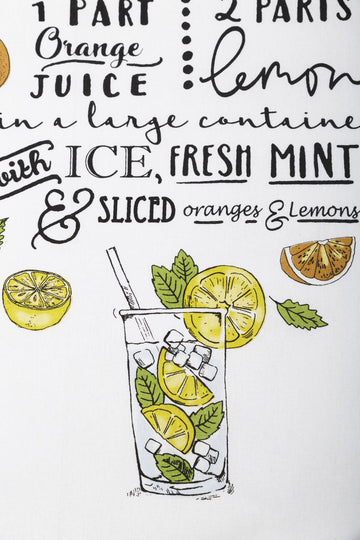 1 PART 2 PARTS
Orange lemon
JUICE
in a large containe
with ICE, FRESH MINT
& SLICED oranges & Lemons